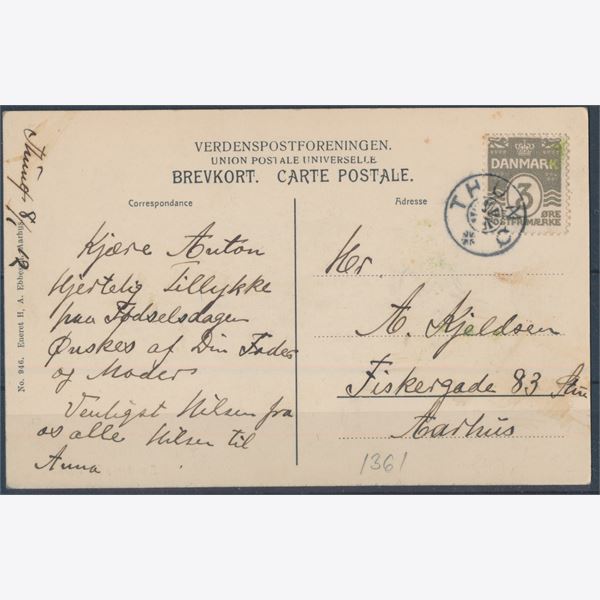 VERDENSPOSTFORENINGEN.
UNION POSTALE UNIVERSELLE
BREVKORT. CARTE POSTALE.
Correspondance
Adresse
DANMARK
3
ØRE
POSTFRIMÆRKE
THUNØ
8/11 12
No. 946. Eneret H. A. Ebbesen, Aarhus.
Kjære Anton
Hjertelig Tillykke
paa Fødselsdagen
Ønskes af Din Fader
og Moder
Venligst Hilsen fra
os alle Hilsen til
Anna
Hr.
A. Kjeldsen
Fiskergade 83
Aarhus
1361